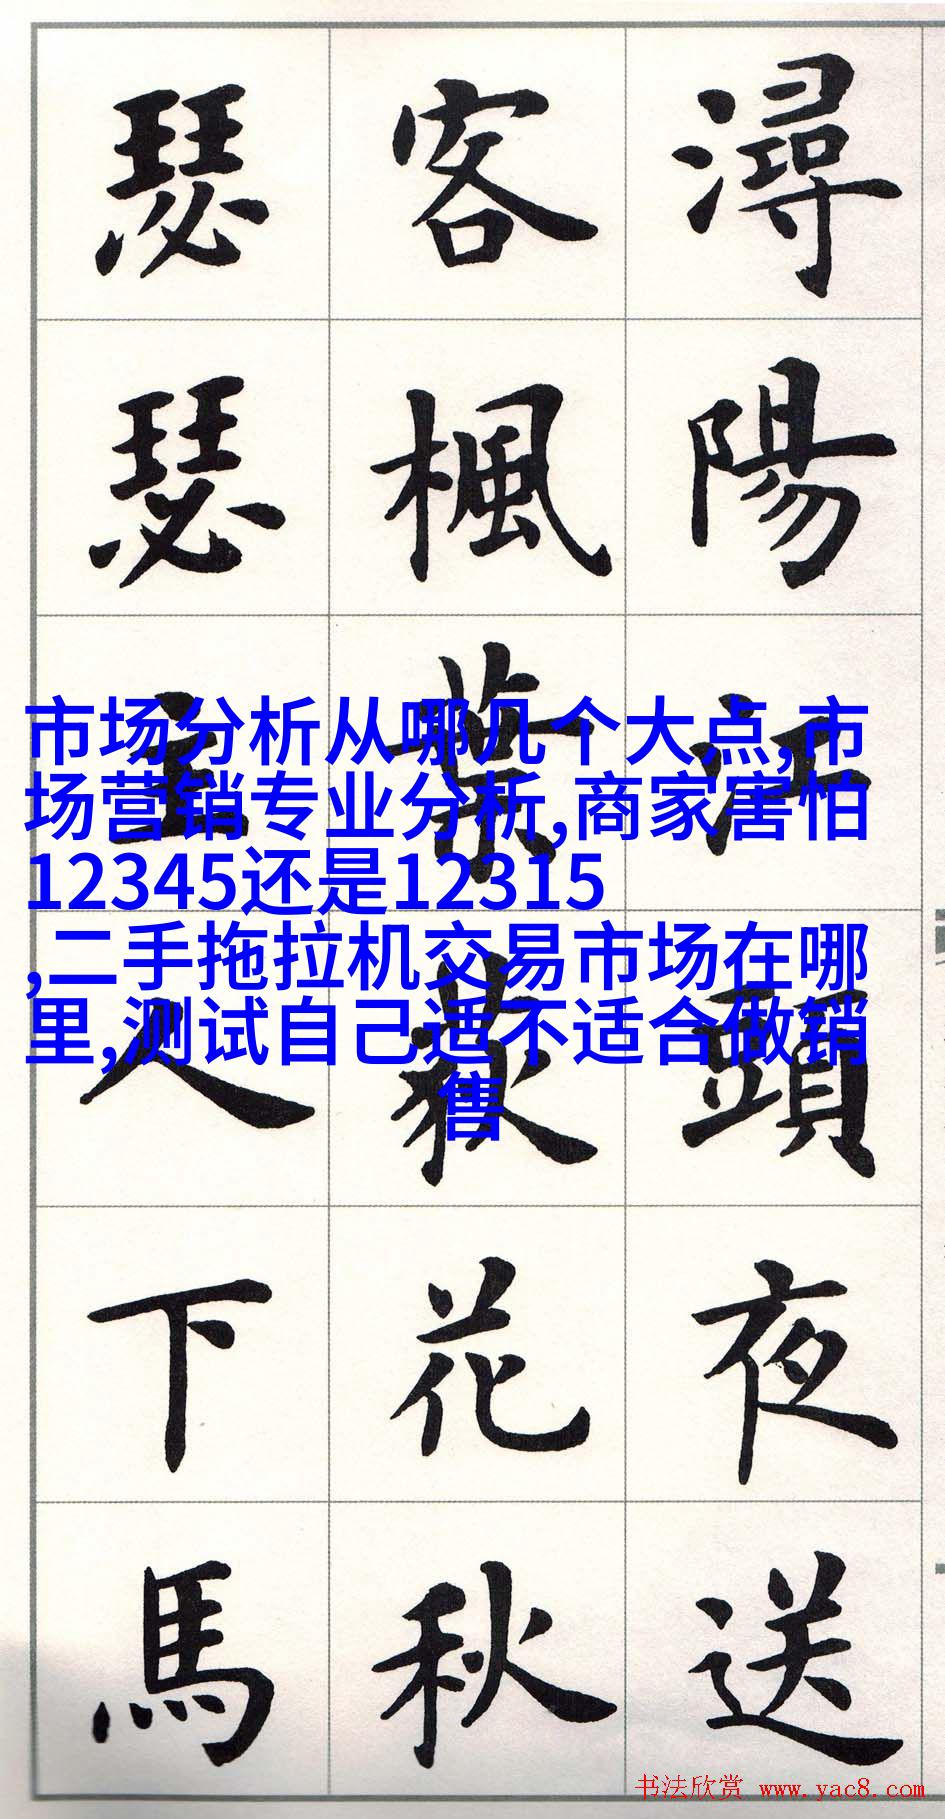 潯陽江頭夜送
客楓葉荻花秋
瑟瑟主人下馬
市场分析从哪几个大点,市
场营销专业分析,商家害怕
12345还是12315
,二手拖拉机交易市场在哪
里,测试自己适不适合做销
售
书法欣赏 www.yac8.com